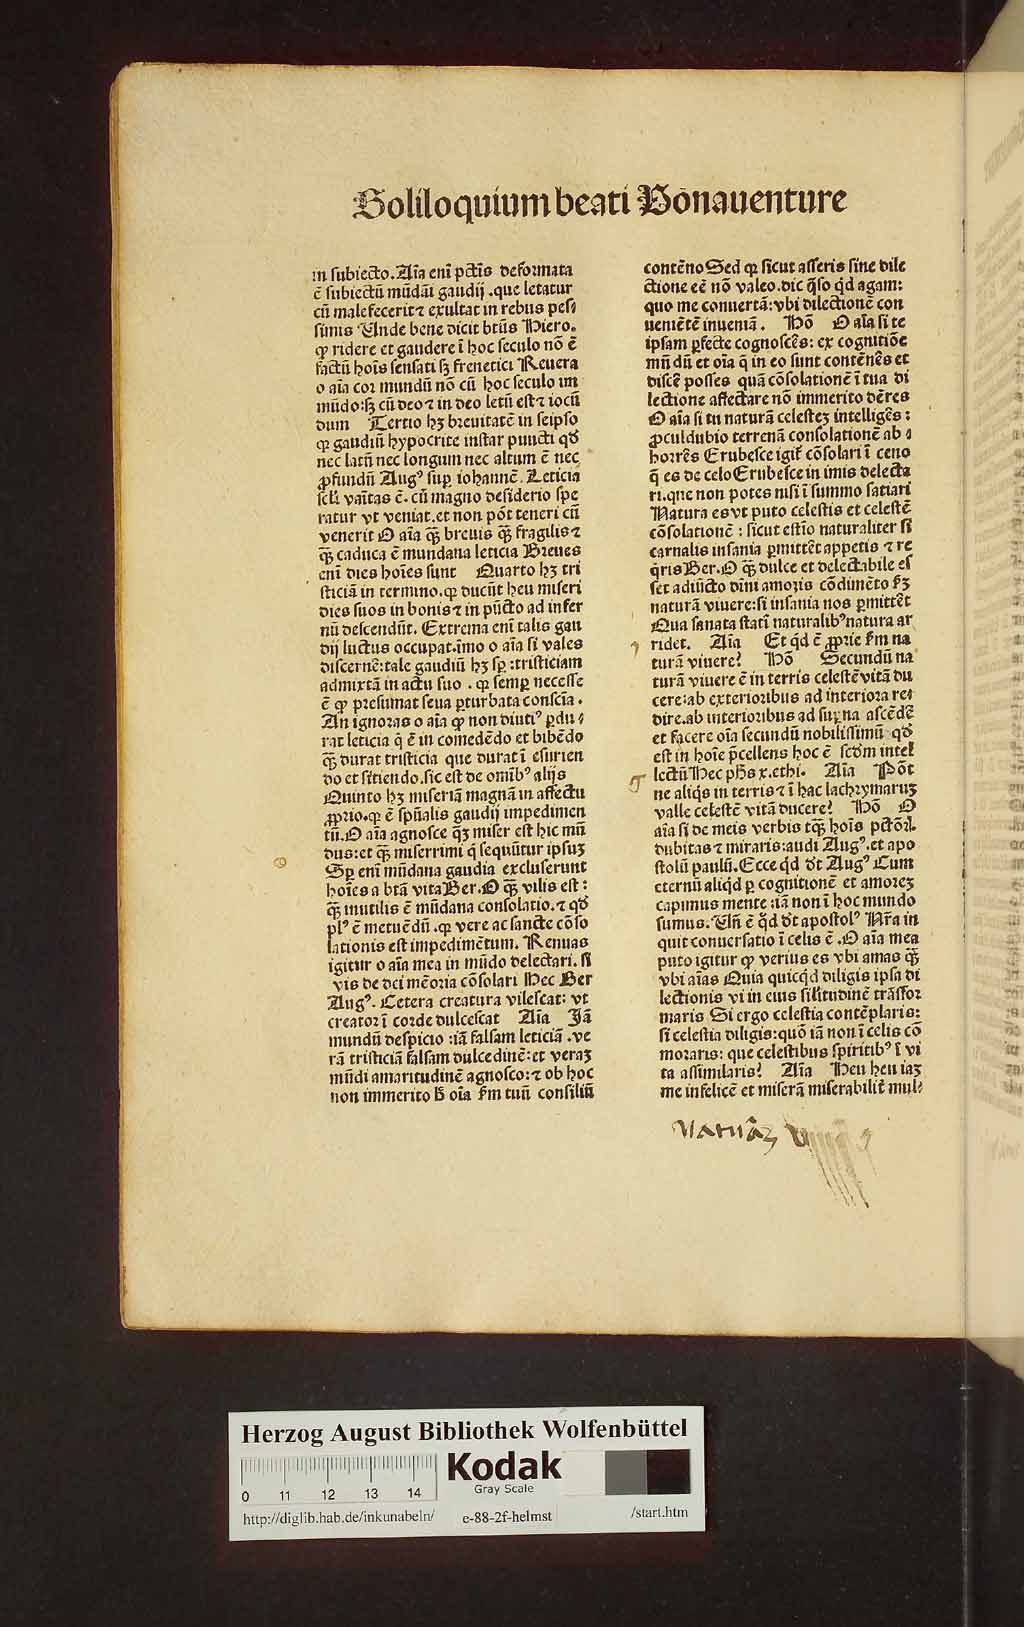 Soliloquium beati Bonauenture
in subiecto. Aīa enī pctīs deformata
ē subiectū mūdāi gaudij .que letatur
cū malefecerit ⁊ exultat in rebus pes⸗
simis Unde bene dicit btūs Hiero.
ꝙ ridere et gaudere ī hoc seculo nō ē
factū hoīs sensati sꝫ frenetici Reuera
o aīa cor mundū nō cū hoc seculo im
mūdo:sꝫ cū deo ⁊ in deo letū est ⁊ iocū
dum Tertio hꝫ breuitatē in seipso
ꝙ gaudiū hypocrite instar puncti qd̄
nec latū nec longum nec altum ē nec
ꝓfundū Augꝰ suꝑ iohannē. Leticia
scl̄i vaītas ē. cū magno desiderio spe
ratur vt veniat.et non pōt teneri cū
venerit O aīa qꝫ̄ breuis qꝫ̄ fragilis ⁊
qꝫ̄ caduca ē mundana leticia Breues
enī dies hoīes sunt Quarto hꝫ tri
sticiā in termino.ꝙ ducūt heu miseri
dies suos in bonis ⁊ in pūcto ad infer
nū descendūt. Extrema enī talis gau
dij luctus occupat.īmo o aīa si vales
discernē:tale gaudiū hꝫ sꝑ :tristiciam
admixtā in actu suo . ꝙ semꝑ necesse
ē ꝙ presumat seua ꝑturbata consciā .
An ignoras o aīa ꝙ non diutiꝰ ꝑdu⸗
rat leticia q̄ ē in comedēdo et bibēdo
qꝫ̄ durat tristicia que durat ī esurien
do et sitiendo.sic est de omībꝰ alijs
Quinto hꝫ miseriā magnā in affectu
ꝓprio.ꝙ ē spūalis gaudij impedimen
tū.O aīa agnosce qꝫ̄ miser est hic mū
dus:et qꝫ̄ miserrimi q̄ sequūtur ipsuꝫ
Sꝑ enī mūdana gaudia excluserunt
hoīes a btā vita Ber.O qꝫ̄ vilis est :
qꝫ̄ inutilis ē mūdana consolatio.⁊ qd̄
plꝰ ē metuēdū .ꝙ vere ac sancte cōso
lationis est impedimētum. Renuas
igitur o aīa mea in mūdo delectari. si
vis de dei mēoria cōsolari Hec Ber
Augꝰ. Cetera creatura vilescat: vt
creator ī corde dulcescat Aīa Jā
mundū despicio :iā falsam leticiā .ve
rā tristiciā falsam dulcedinē:et veraꝫ
mūdi amaritudinē agnosco:⁊ ob hoc
non immerito h̄ oīa ẜm tuū consiliū
contēno Sed ꝙ sicut asseris sine dile
ctione eē nō valeo.dic q̄so qd̄ agam:
quo me conuertā:vbi dilectionē con
uenientē inueniā . Hō O aīa si te
ipsam ꝑfecte cognoscēs: ex cognitiōe
mū dū et oīa q̄ in eo sunt contēnēs et
discē posses quā cōsolationē ī tua di
lectione affectare nō immerito dēres
O aīa si tu naturā celesteꝫ intelligēs :
ꝓculdubio terrenā consolationē ab⸗
horrēs Erubesce igit̄ cōsolari ī ceno
q̄ es de celo Erubesce in imis delecta
ri.que non potes nisi ī summo satiari
Natura es vt puto celestis et celestē
cōsolationē : sicut estīo naturaliter si
carnalis insania ꝑmittēt appetis ⁊ re
q̄ris Ber.O qꝫ̄ dulce et delectabile es
set adiūcto diuī amoris cōdimēto ẜꝫ
naturā viuere:si insania nos ꝑmittēt
Qua sanata statī naturalibꝰ natura ar
ridet. Aīa Et qd̄ ē ꝓprie ẜm na
turā viuere? Hō Secundū na
turā viuere ē in terris celestē vitā du
cere:ab exterioribus ad interiora re⸗
dire.ab interioribus ad suꝑna ascēdē
et facere oīa secundū nobilissimū qd̄
est in hoīe p̄cellens hoc ē scd̄m intel
lectū Hec ph̄s x.ethi. Aīa Pōt
ne aliq̄s in terris ⁊ ī hac lachrymaruꝫ
valle celestē vitā ducere? Hō O
aīa si de meis verbis tqꝫ̄ hoīs pctōꝝ.
dubitas ⁊ miraris:audi Augꝰ.et apo
stolū paulū.Ecce qd̄ dt̄ Augꝰ Cum
eternū aliqd̄ ꝑ cognitionē et amoreꝫ
capimus mente :iā non ī hoc mundo
sumus. Un̄ ē qd̄ dt̄ apostolꝰ Nr̄a in
quit conuersatio ī celis ē .O aīa mea
puto igitur ꝙ verius es vbi amas qꝫ̄
vbi aīas Quia quicqd̄ diligis ipsa di
lectionis vi in eius sil̄itudinē trāsfor
maris Si ergo celestia contēplaris:
si celestia diligis:quō iā non ī celis cō
moraris: que celestibus spiritibꝰ ī vi
ta assimilaris? Aīa Heu heu iaꝫ
me infelicē et miserā miserabilit̄ mul⸗
Herzog August Bibliothek Wolfenbüttel
0 11 12 13 14
Kodak
Gray Scale
http://diglib.hab.de/inkunabeln/ e-88-2f-helmst /start.htm